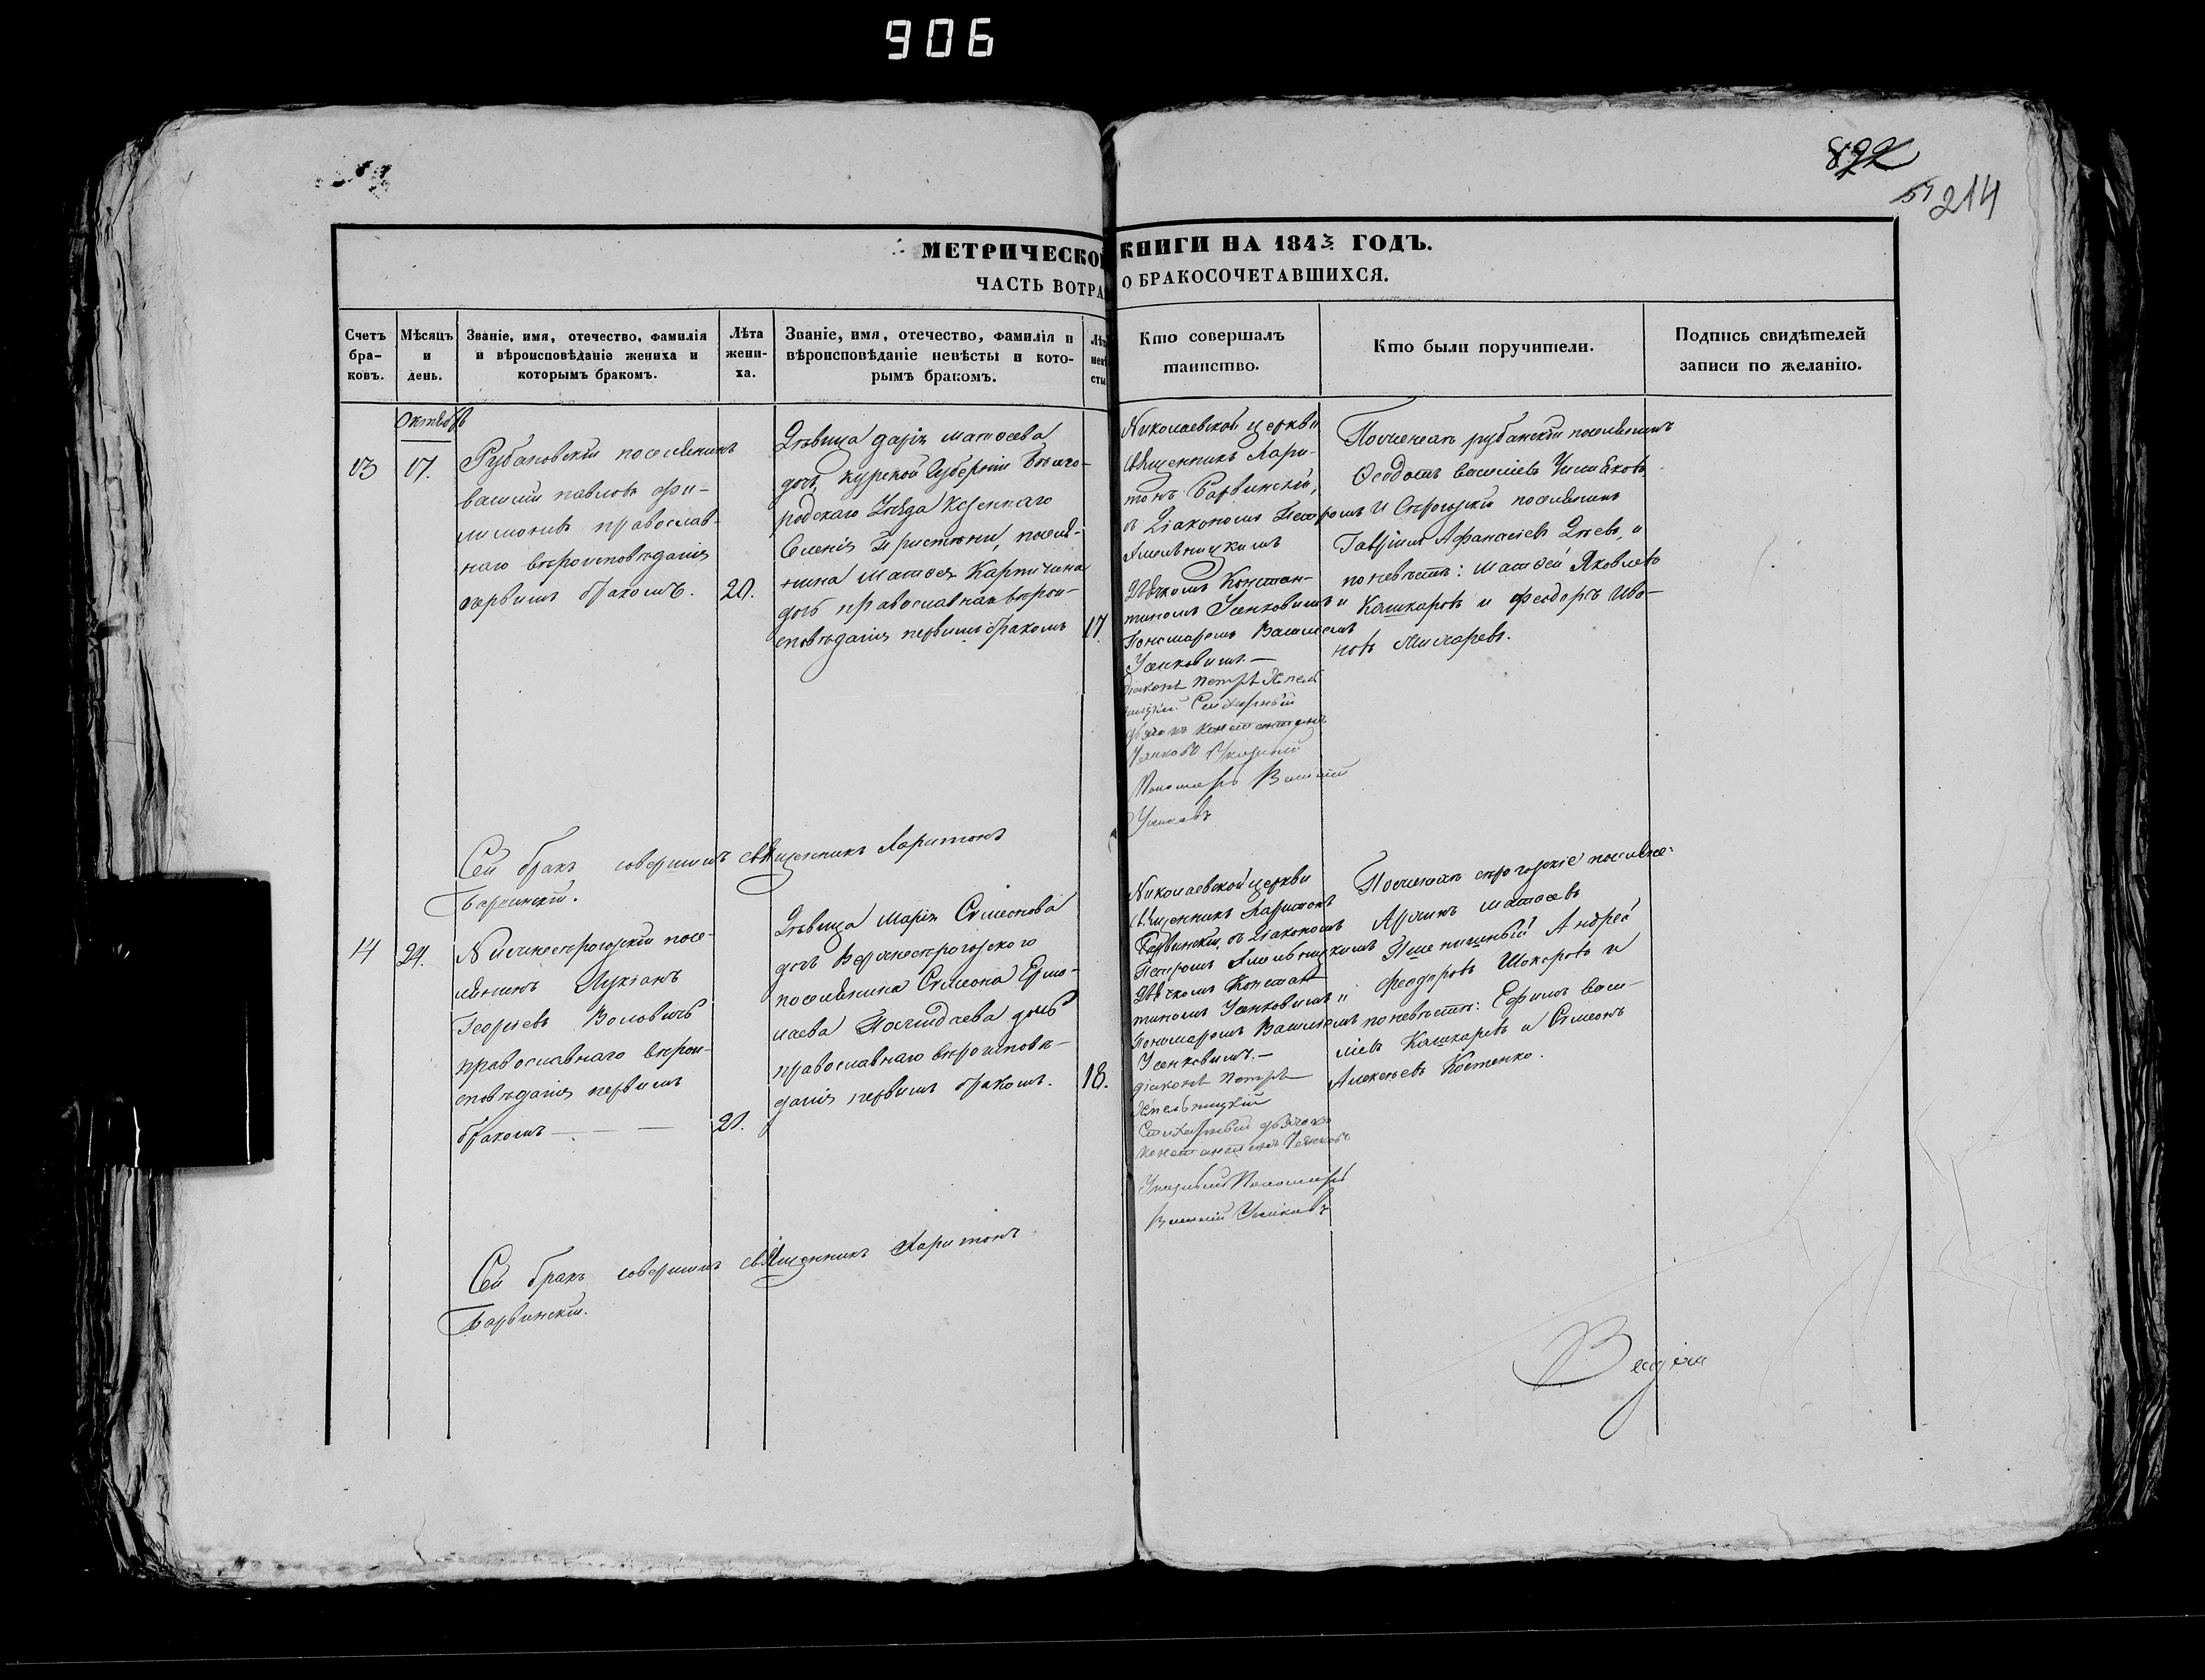 906
822
57 214
МЕТРИЧЕСКОЙ КНИГИ НА 1843 ГОДЪ.
ЧАСТЬ ВОТРА О БРАКОСОЧЕТАВШИХСЯ.
Счетъ бра-ковъ.
Мѣсяцъ и день.
Званіе, имя, отечество, фамилія и вѣроисповѣданіе жениха и которымъ бракомъ.
Лѣта жени-ха.
Званіе, имя, отечество, фамилія и вѣроисповѣданіе невѣсты и кото-рымъ бракомъ.
Лѣт нев сты
Кто совершалъ таинство.
Кто были поручители.
Подпись свидѣтелей записи по желанію.
Октябрь
13
17.
Рубановскій поселянинъ
василій павловъ фи-
лимоновъ православ-
наго вѣроисповѣданія
первымъ бракомъ.
20.
Дѣвица дарія матѳеева
дочь, курской Губерніи Бѣлго-
родскаго Уѣзда Казеннаго
Селенія поселя-
нина матѳея
дочь православнаго вѣрои-
сповѣданія первымъ бракомъ
17.
Николаевской церкви
священникъ Хари-
тонъ Барвинскій,
съ Діакономъ Петромъ
Хмельницкимъ
Дьячкомъ Констан-
тиномъ Усенковымъ и
Пономаремъ Василіемъ
Усенковымъ.—
Діаконъ Петръ Хмель
ницкій Стихарный
дьячокъ Константинъ
Усенковъ Указный
Пономарь Василій
Усенковъ
По женихѣ рубанскій поселянинъ
Ѳеодотъ васильевъ
И Сѣрогозскій поселянинъ
Гавріилъ Афанасіевъ и
по невѣстѣ: матѳей Яковлевъ
Кашкаровъ и Феодоръ Ива-
новъ Лихаревъ.
Сей бракъ совершилъ священникъ Харитонъ
Барвинскій.
14
24.
Нижнесѣрогозскій посе-
лянинъ Лукіанъ
Георгіевъ Воловикъ
православнаго вѣрои-
сповѣданія первымъ
бракомъ — — —
21.
Дѣвица Марія Симеонова
дочь Верхнесѣрогозского
поселянина Симеона Ермо-
лаева дочь
православнаго вѣроисповѣ-
данія первымъ бракомъ.
18.
Николаевской церкви
священникъ Харитонъ
Барвинскій, съ Діакономъ
Петромъ Хмельницкимъ
Дьячкомъ Констан
тиномъ Усенковымъ и
Пономаремъ Василіемъ
Усенковымъ.—
діаконъ Петръ
Хмельницкій
Стихарный дьячокъ
Константинъ Усенковъ
Указный Пономарь
Василій Усенковъ
По женихѣ сѣрогозскіе поселяне:
матѳеевъ
Пшеничный Андрей
Феодоровъ Шокаровъ и
по невѣстѣ: Ефимъ васи-
ліевъ Кашкаровъ и Симеонъ
Алексѣевъ Костенко.
Сей бракъ совершилъ священникъ Харитонъ
Барвинскій.